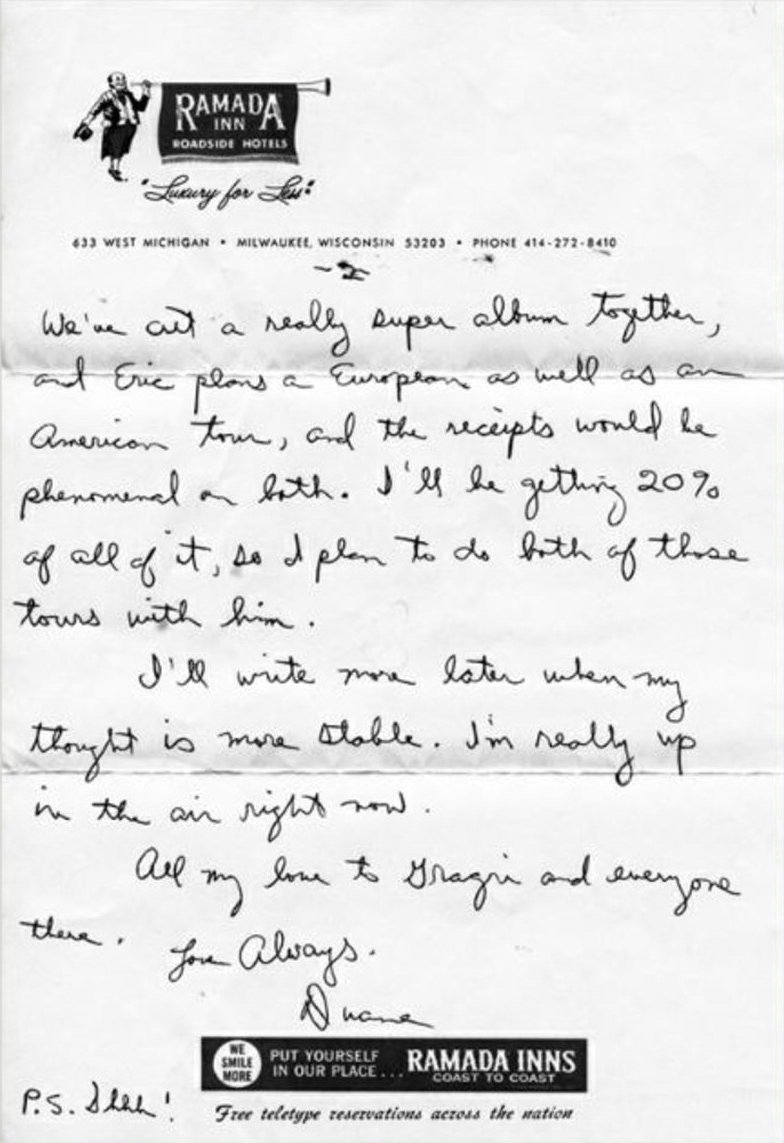 RAMADA
INN
ROADSIDE HOTELS
"Luxury for Less"
633 WEST MICHIGAN • MILWAUKEE, WISCONSIN 53203 • PHONE 414-272-8410
We've cut a really super album together,
and Eric plans a European as well as an
American tour, and the receipts would be
phenomenal on both. I'll be getting 20%
of all of it, so I plan to do both of those
tours with him.
I'll write more later when my
thought is more stable. I'm really up
in the air right now.
All my love to and everyone
there.
Love Always.
Duane
WE
SMILE
MORE
PUT YOURSELF
IN OUR PLACE...
RAMADA INNS
COAST TO COAST
P.S. Shhh!
Free teletype reservations across the nation